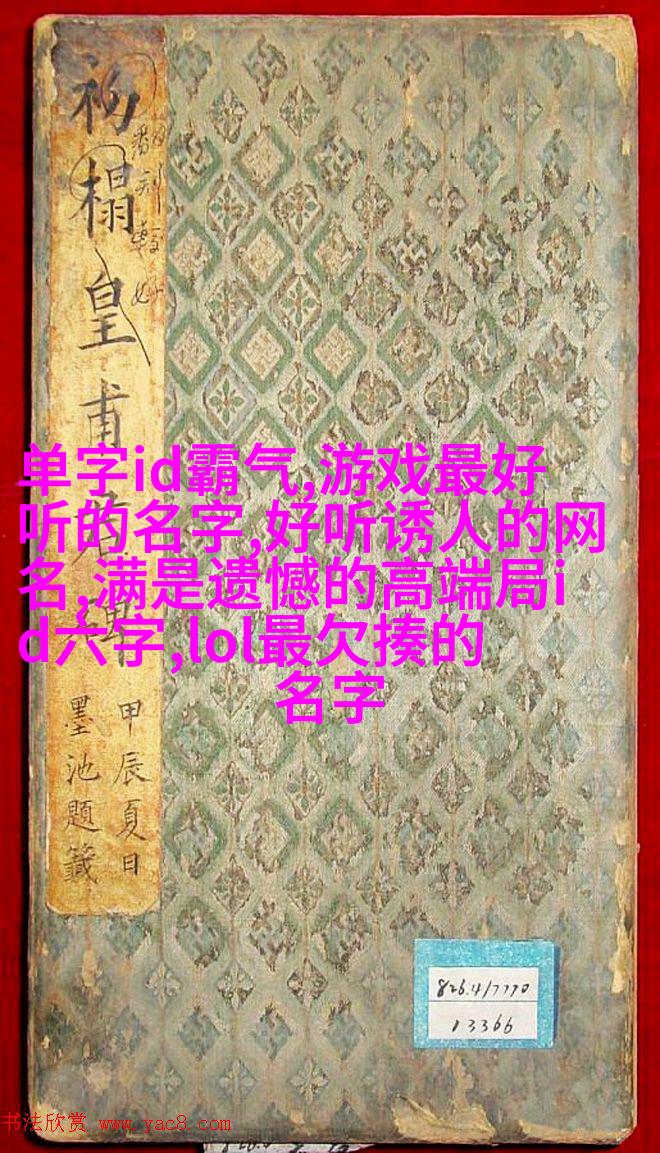 初榻皇甫君碑
甲辰夏日
墨池題籤
单字id霸气,游戏最好
听的名字,好听诱人的网
名,满是遗憾的高端局i
d六字,lol最欠揍的
名字
826.4/7770
13366
书法欣赏 www.yac8.com